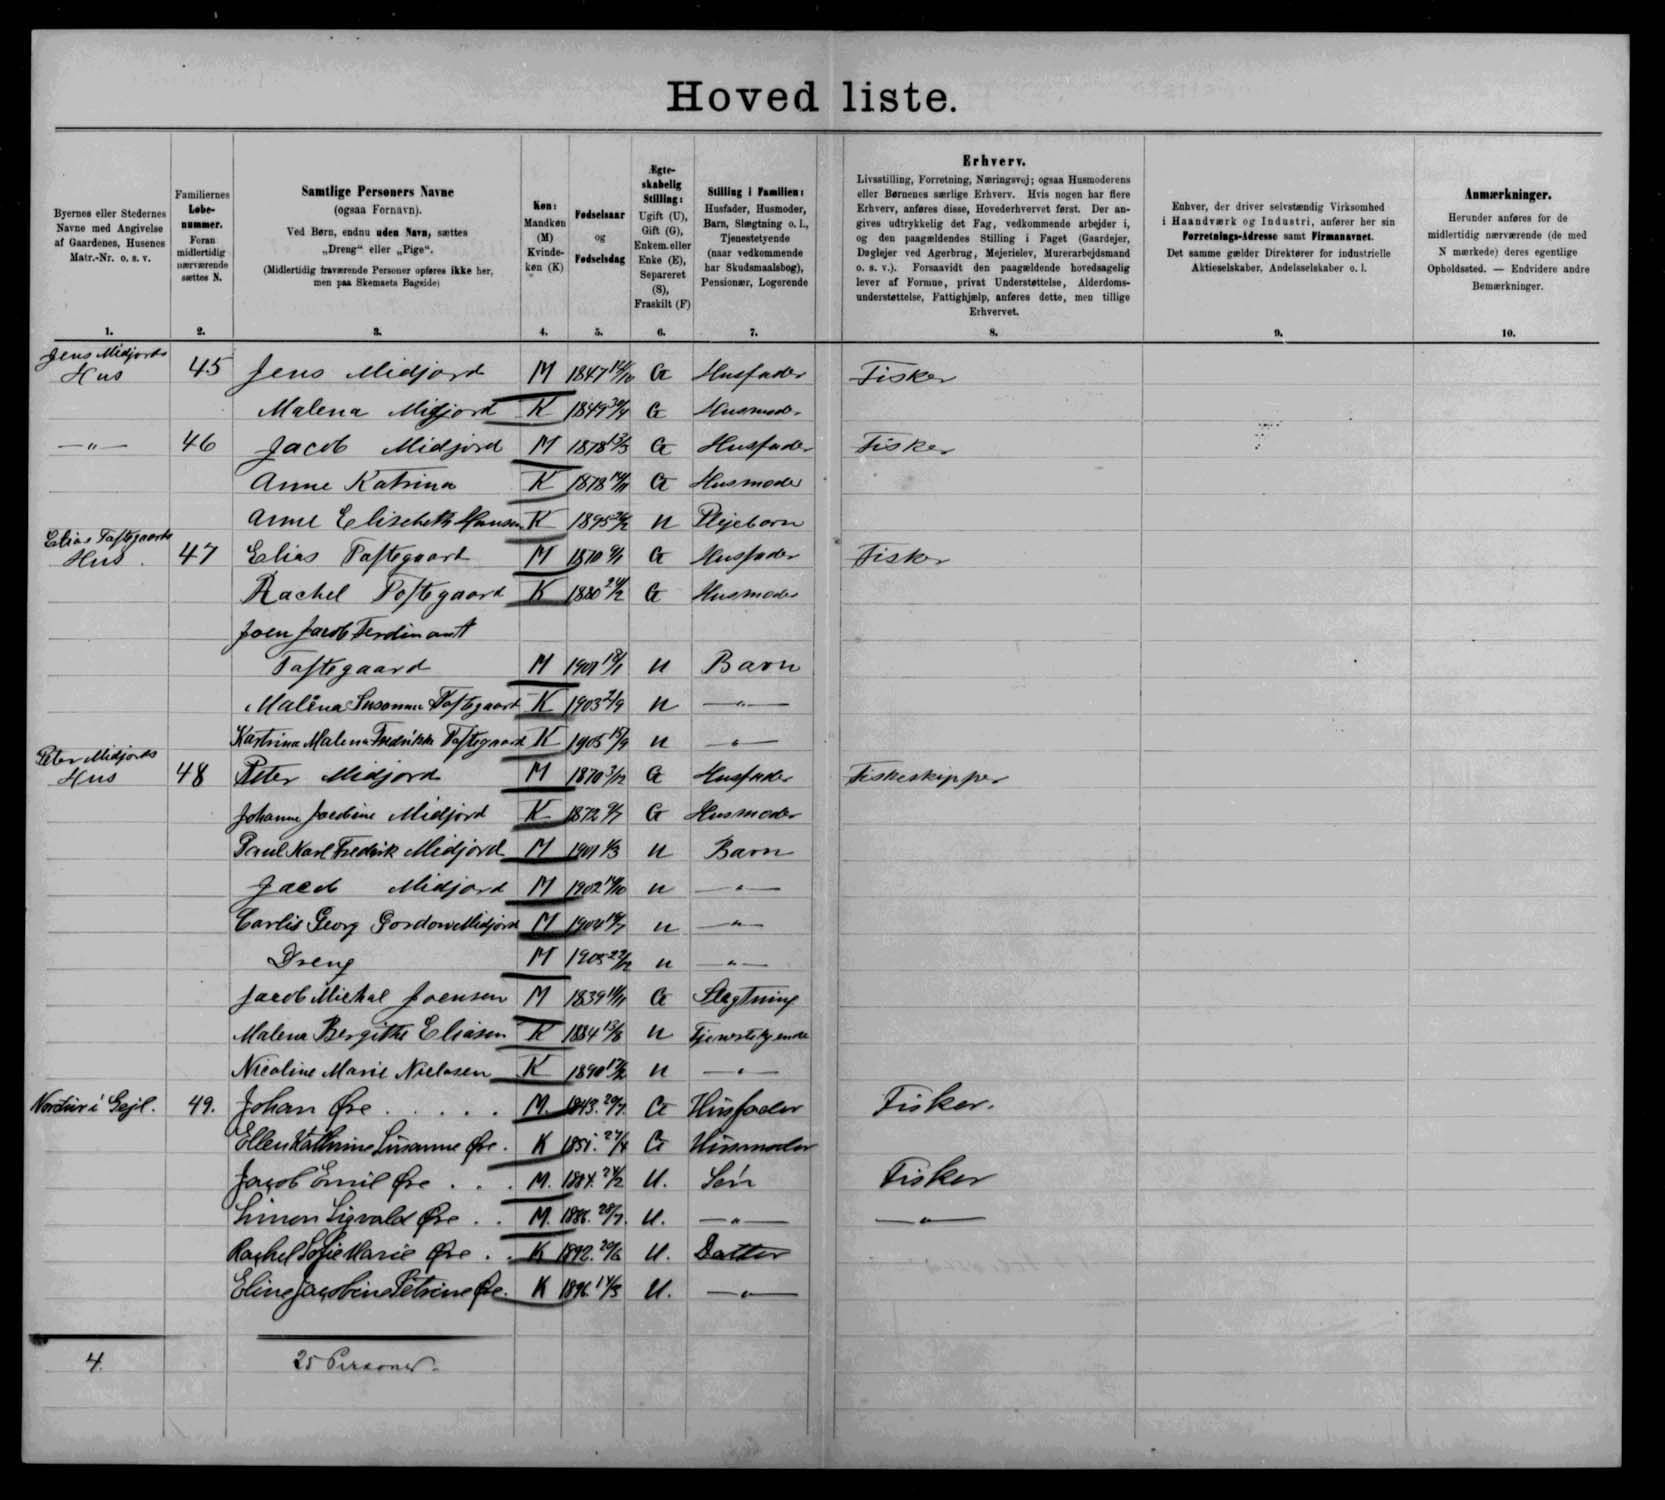 Hovedliste.
Byernes eller Stedernes
Navne med Angivelse
af Gaardenes, Husenes
Matr.-Nr. o. s. v.
1.
Familiernes
Løbe-
nummer.
Foran
midlertidig
nærværende
sættes N.
2.
Samtlige Personers Navne
(ogsaa Fornavn).
Ved Børn, endnu uden Navn, sættes
„Dreng“ eller „Pige“.
(Midlertidig fraværende Personer opføres ikke her,
men paa Skemaets Bagside)
3.
Køn:
Mandkøn
(M)
Kvinde-
køn (K)
4.
Fødselsaar
og
Fødselsdag
5.
Ægte-
skabelig
Stilling:
Ugift (U),
Gift (G),
Enkem. eller
Enke (E),
Separeret
(S),
Fraskilt (F)
6.
Stilling i Familien:
Husfader, Husmoder,
Barn, Slægtning o. l.,
Tjenestetyende
(naar vedkommende
har Skudsmaalsbog),
Pensionær, Logerende
7.
Erhverv.
Livsstilling, Forretning, Næringsvej; ogsaa Husmoderens
eller Børnenes særlige Erhverv. Hvis nogen har flere
Erhverv, anføres disse, Hovederhvervet først. Der an-
gives udtrykkelig det Fag, vedkommende arbejder i,
og den paagældendes Stilling i Faget (Gaardejer,
Daglejer ved Agerbrug, Mejerielev, Murerarbejdsmand
o. s. v.). Forsaavidt den paagældende hovedsagelig
lever af Formue, privat Understøttelse, Alderdoms-
understøttelse, Fattighjælp, anføres dette, men tillige
Erhvervet.
8.
Enhver, der driver selvstændig Virksomhed
i Haandværk og Industri, anfører her sin
Forretnings-Adresse samt Firmanavnet.
Det samme gælder Direktører for industrielle
Aktieselskaber, Andelsselskaber o. l.
9.
Anmærkninger.
Herunder anføres for de
midlertidig nærværende (de med
N mærkede) deres egentlige
Opholdssted. — Endvidere andre
Bemærkninger.
10.
Jens Midjords
Hus 45 Jens Midjord M 1847 14/10 G Husfader Fisker
Malena Midjord K 1849 30/4 G Husmoder
—"— 46 Jacob Midjord M 1878 13/3 G Husfader Fisker
Anne Katrina K 1878 14/11 G Husmoder
Anne Elisebeth Hansen K 1895 26/2 U Plejebarn
Elias Toftegaards
Hus. 47 Elias Toftegaard M 1870 9/1 G Husfader Fisker
Rachel Toftegaard K 1880 24/2 G Husmoder
Joen Jacob Ferdinant
Toftegaard M 1901 18/1 U Barn
Malena Susanna Toftegaard K 1903 2/9 U —"—
Kartrina Malena Fredrikke Toftegaard K 1905 15/9 U —"—
Peter Midjords
Hus 48 Peter Midjord M 1870 3/12 G Husfader Fiskeskipper
Johanne Jacobine Midjord K 1872 9/7 G Husmoder
Poul Karl Fredrik Midjord M 1901 1/3 U Barn
Jacob Midjord M 1902 14/10 U —"—
Carlis Georg Gordon Midjord M 1904 19/7 U —"—
Dreng M 1905 22/12 U —"—
Jacob Michal Joensen M 1839 11/11 G Slægtning
Malena Bergitte Eliasen K 1884 13/8 U Tjenestetyende
Nicoline Marie Nielasen K 1890 17/2 U —"—
Nordur i Gejl. 49. Johan Øre . . . . . M. 1843. 20/7. G Husfader Fisker.
Ellen Kathrine Susanne Øre. K 1851. 27/4 G Husmoder
Jacob Emil Øre . . . M. 1884. 24/2 U. Søn Fisker
Simon Sigvald Øre . . M. 1886. 28/7. U. —"— —"—
Rachel Sofie Marie Øre . . K 1892. 20/6 U. Datter
Eline Jacobine Petrine Øre. K 1896. 14/3 U. —"—
4. 25 Personer.